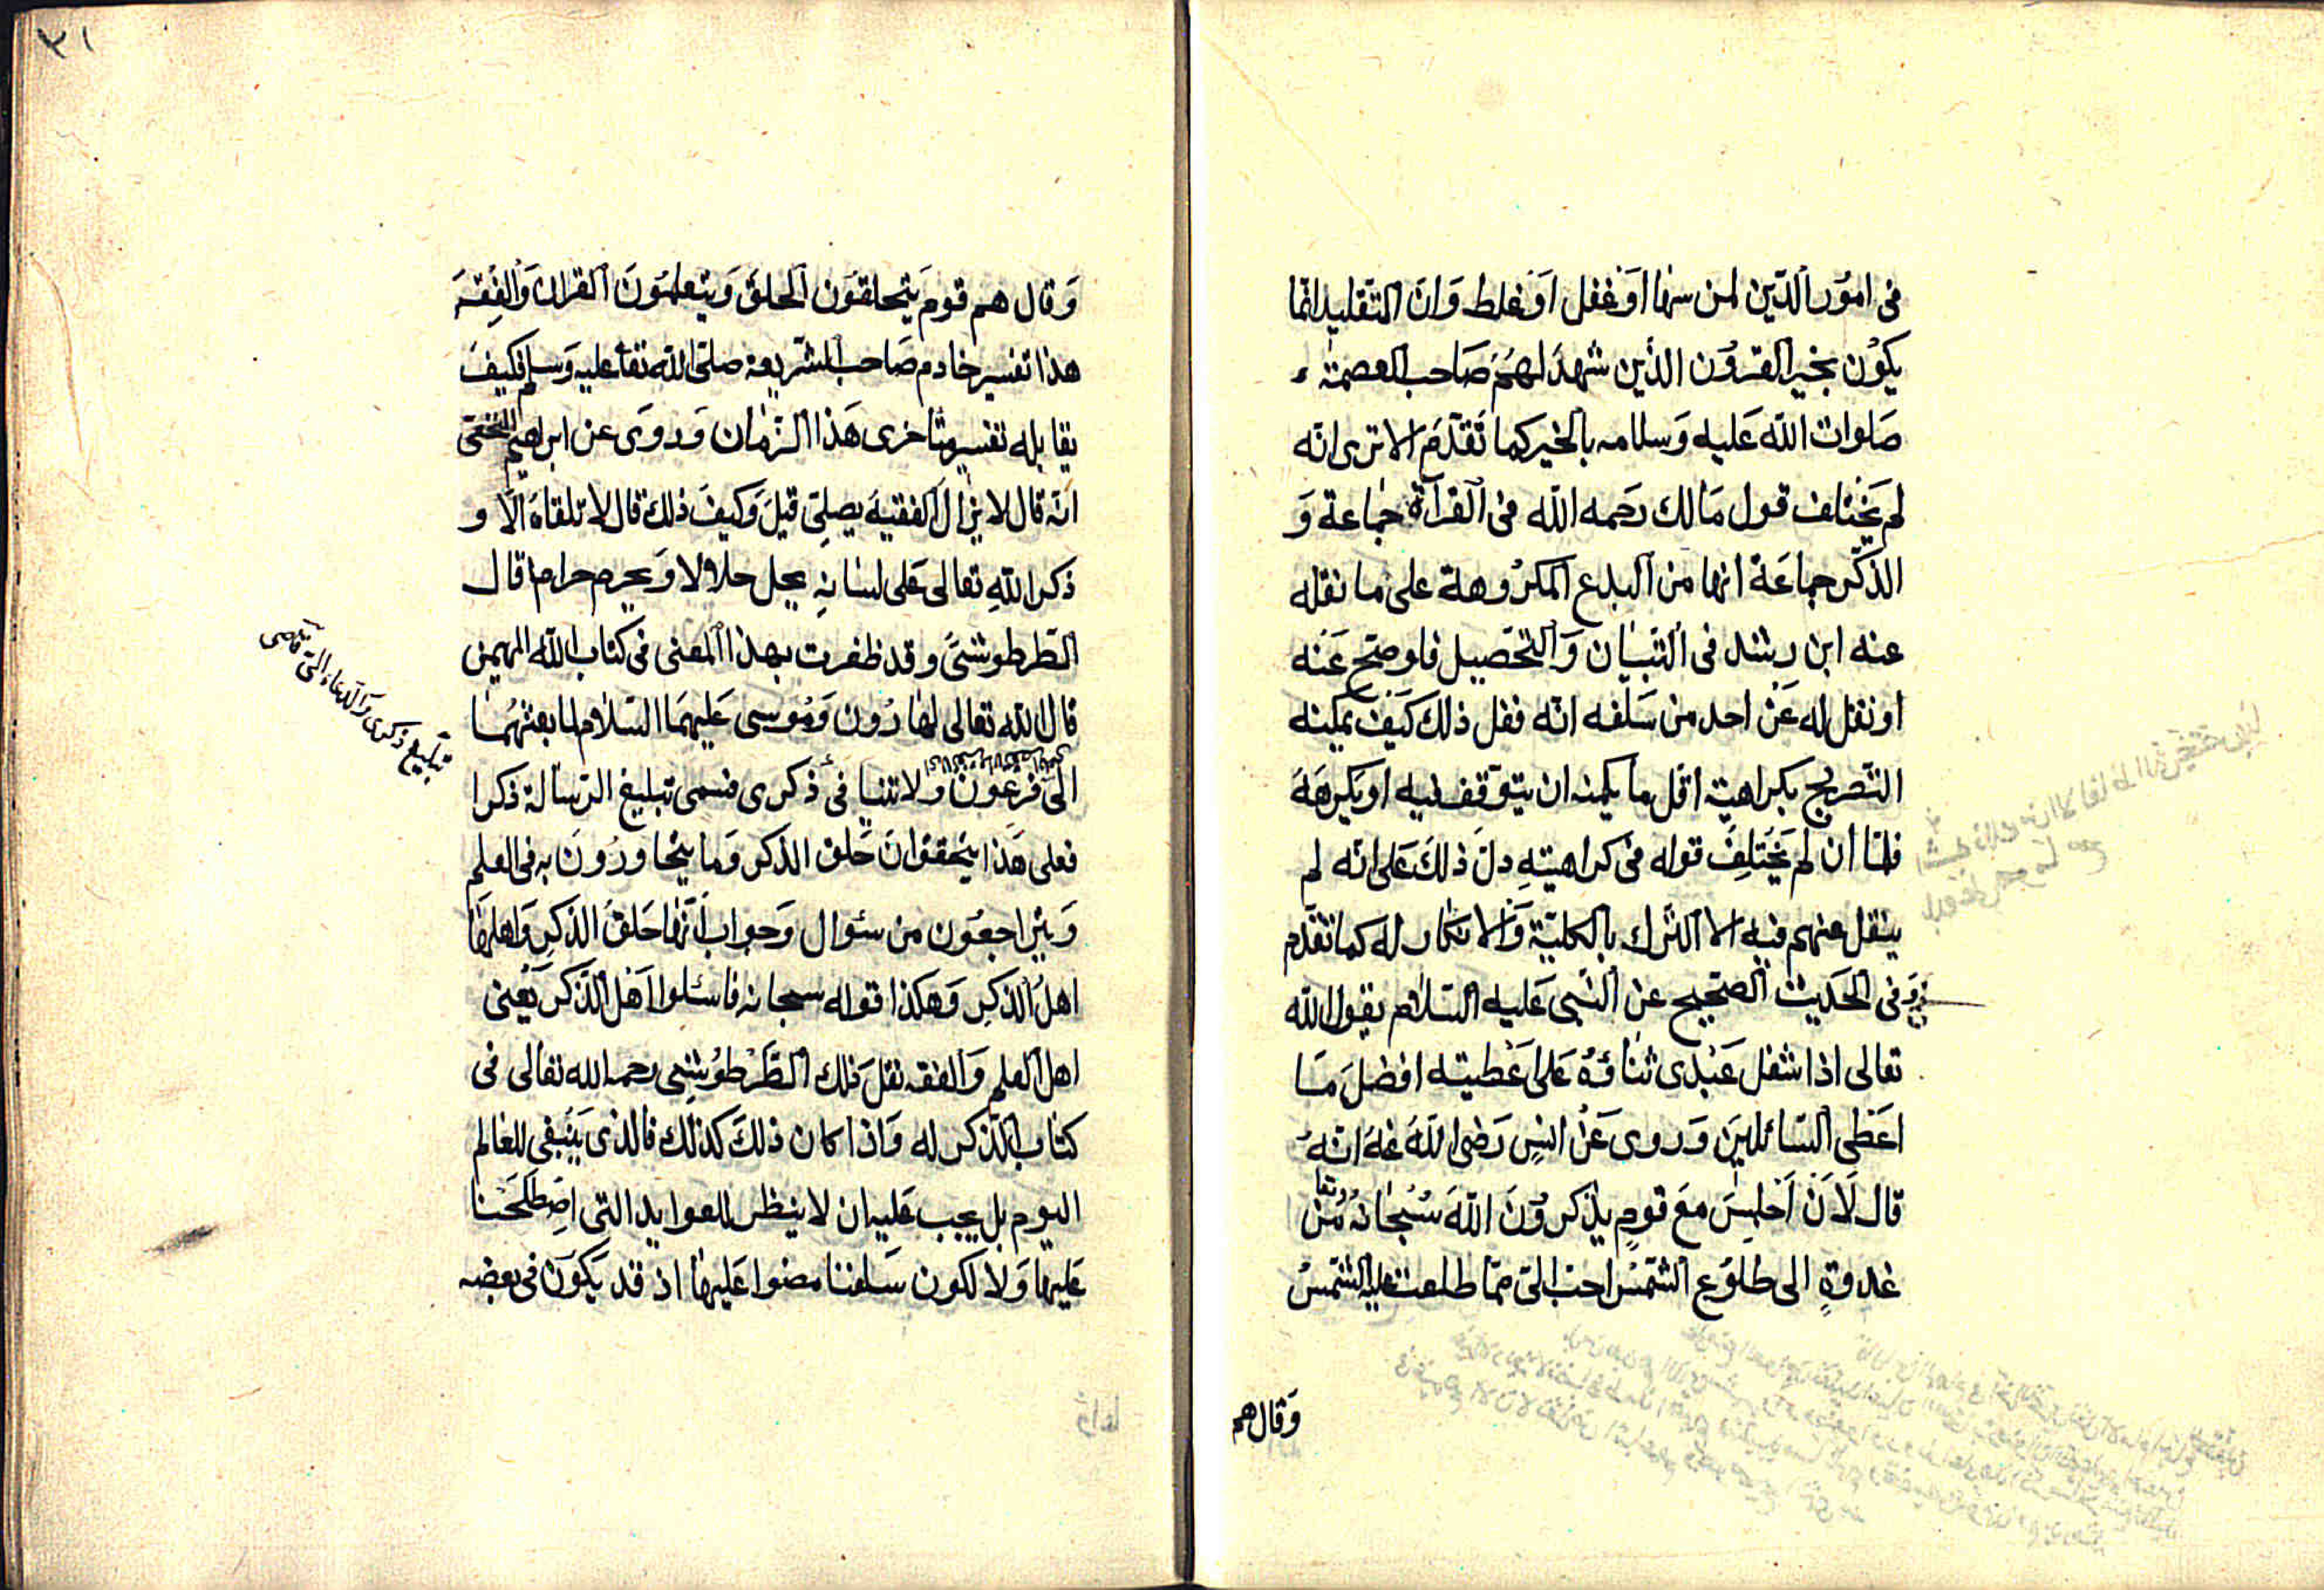 فى امور الدين لمن سها او غفل او غلط وان التقليد انما
يكون بخير القرون الذين شهد لهم صاحب العصمة
صلوات الله عليه وسلامه بالخير كما تقدم الا ترى انه
لم يختلف قول مالك رحمه الله فى القرآة جماعة و
الذكر جماعة انها من البدع المكروهة على ما نقله
عنه ابن رشد فى التبيان والتحصيل فلو صح عنه
او نقل له عن احد من سلفه انه فعل ذلك كيف يمكنه
التصريح بكراهيته اقل ما يمكنه ان يتوقف فيه او يكرهه
فلما ان لم يختلف قوله فى كراهيته دل ذلك على انه لم
ينقل عنهم فيه الا الترك بالكلية والانكار له كما تقدم
وفى الحديث الصحيح عن النبى عليه السلام يقول الله
تعالى اذا شغل عبدى ثناؤه على اعطيته افضل ما
اعطى السائلين وروى عن انس رضى الله عنه انه
قال لان اجلس مع قوم يذكرون الله سبحانه وتعا من
غدوة الى طلوع الشمس احب الى مما طلعت عليه الشمس
وقال هم
٣١
وقال هم قوم يتحلقون الحلق ويتعلمون القران والفقه
هذا تفسير خادم صاحب الشريعة صلى الله تعا عليه وسلم فكيف
يقابله تفسير متأخرى هذا الزمان وروى عن ابراهيم النخعى
انه قال لا يزال الفقيه يصلى قيل وكيف ذلك قال لا تلقاه الا و
ذكر الله تعالى على لسانه يحل حلالا ويحرم حراما قال
الطرطوشى وقد ظفرت بهذا المعنى فى كتاب الله المهيمن
قال الله تعالى لهارون وموسى عليهما السلام لما بعثهما
الى فرعون ولا تنيا فى ذكرى فسمى تبليغ الرسالة ذكرا
تبليغ ذكرى والدعاء الى
فعلى هذا يتحقق ان حلق الذكر وما يتحاورون به فى العلم
ويتراجعون من سئوال وجواب انها حلق الذكر واهلها
اهل الذكر وهكذا قوله سبحانه فاسئلوا اهل الذكر يعنى
اهل العلم والفقه نقل ذلك الطرطوشى رحمه الله تعالى فى
كتاب الذكر له واذا كان ذلك كذلك فالذى ينبغى للعالم
اليوم بل يجب عليه ان لا ينظر للعوايد التى اصطلحنا
عليها ولا لكون سلفنا مضوا عليها اذ قد يكون فى بعضه